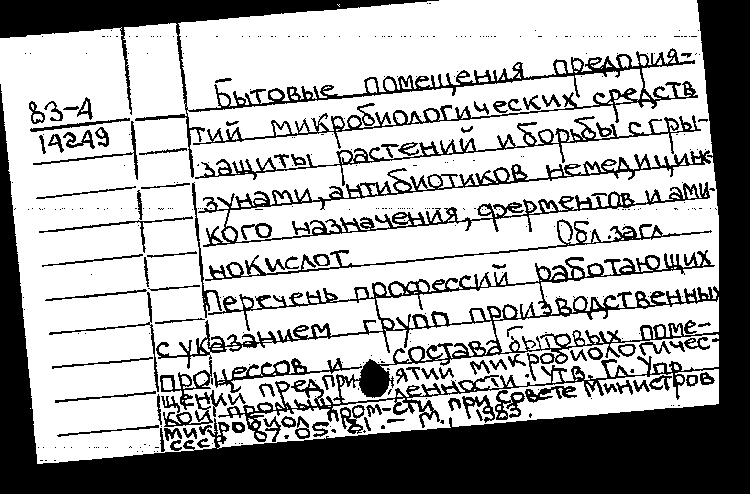 83-4
14249
Бытовые помещения предприя-
тий микробиологических средств
защиты растений и борьбы с гры-
зунами, антибиотиков немедицинс-
кого назначения, ферментов и ами-
нокислот. Обл. загл.
Перечень профессий работающих
с указанием групп производственных
процессов и состава бытовых поме-
щений предприятий микробиологичес-
кой промышленности: Утв. Гл. Упр.
микробиол. пром-сти при Совете Министров
СССР 07.05.81. – М., 1983.